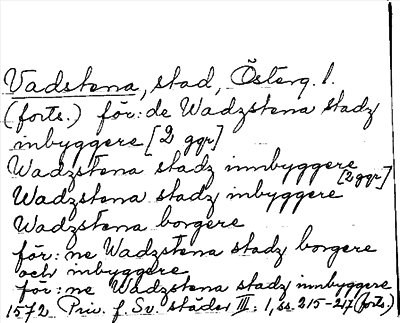 Vadstena, stad, Österg. l.
(forts.) för: de Wadzstena stadz
inbyggere [2 ggr]
Wadzstena stadz innbyggere [2 ggr]
Wadzstena stadz inbyggere
Wadzstena borgere
för: ne Wadzstena stadz borgere
och inbyggere
för: ne Wadzstena stadz innbyggere
1572 Priv. f. Sv. städer III: 1, ss. 215-217 (forts.)